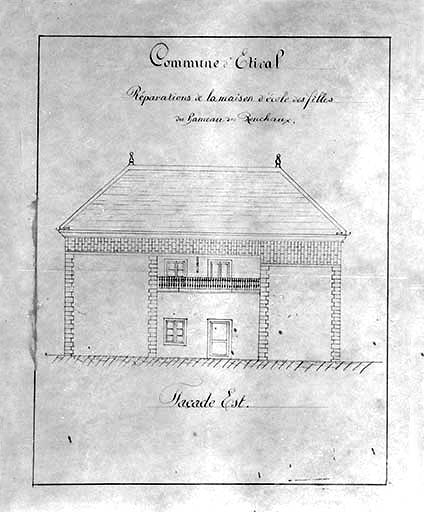 Commune d'Etival
Réparations de la maison d'école des filles
du hameau des Ronchaux.
Façade Est.